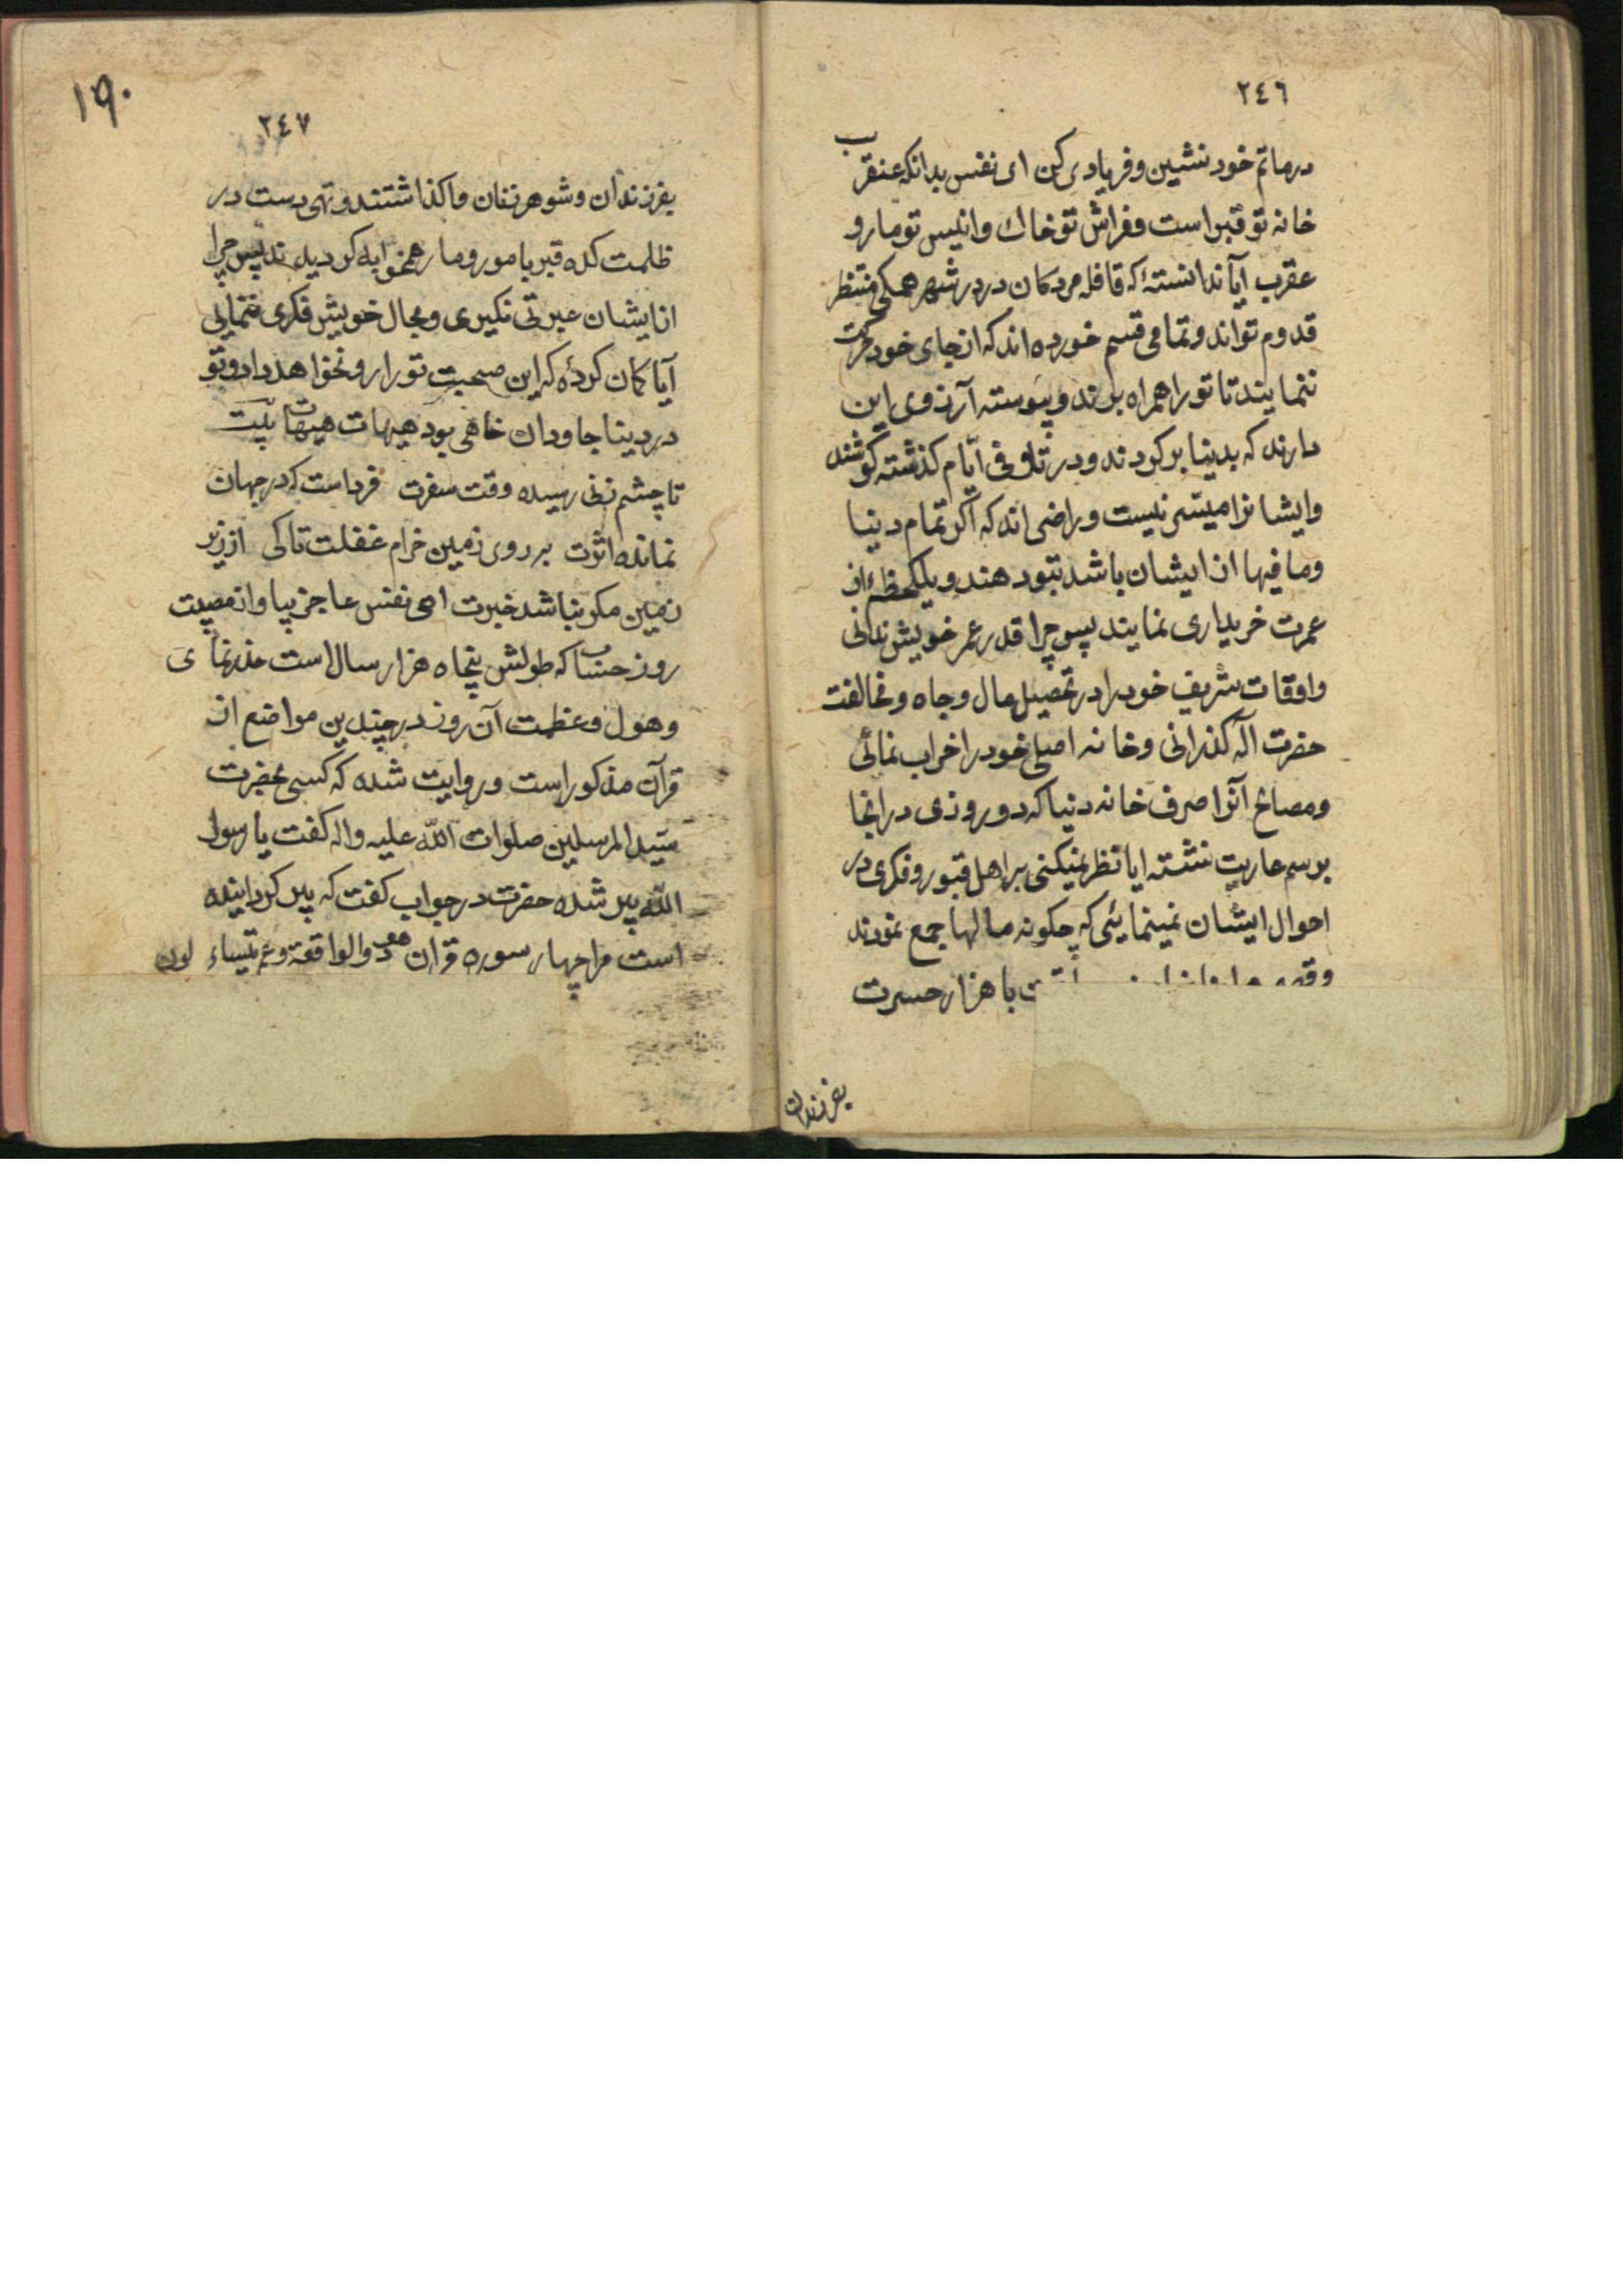 ٢٤٦
درماتم خود بنشین و فریادی کن ای نفس بدانکه عنقریب
خانه تو قبر است و فراش تو خاك و انیس تو مار و
عقرب آیا ندانستۀ که قافله مردکان در در شهر همکی منتظر
قدوم تواند و تمامی قسم خورده اند که از جای خود حرکت
ننمایند تا تو را همراه برند و پیوسته آرزوی این
دارند که بدینا برکردند و در تلافی ایّام کذشته کوشند
و ایشانرا میسّر نیست و راضی اند که اکر تمام دینا
و مافیها از ایشان باشد بتو دهند و یلکحظۀ از
عمرت خریداری نمایند پس چرا قدر عمر خویش ندانی
و اوقات شریف خود را در تحصیل مال و جاه و مخالفت
حضرت آله کذرانی و خانه اصلی خود را خراب نمائی
و مصالح آنرا صرف خانه دنیا که دو روزی در انجا
برسم عاریت نشسته ایا نظر نمیکنی بر اهل قبور و فکری در
احوال ایشان نمینمایئی که چکونه مالها جمع نمودند
با هزار حسرت
بفرزندان
١٩٠
٢٤٧
بفرزندان و شوهر زنان وا کذاشتند و تهی دست در
ظلمت کده قبر با مور و مار همخوابه کردیدند پس چرا
از ایشان عبرتی نکیری و بحال خویش فکری ننمایی
آیا کمان کردۀ که این صحبت تو را رو نخواهد داد و تو
در دینا جاودان خاهی بود هیهات هیهات بیت
تا چشم زنی رسیده وقت سفرت فرداست که در جهان
نمانده اثرت بر روی زمین خرام غفلت تاکی از زیر
زمین مکر نباشد خبرت ای نفس عاجز بیا و از مصیبت
روز حساب که طولش پنجاه هزار سال است حذر نمای
و هول و عظمت آن روز در چندین مواضع از
قرآن مذکور است و روایت شده که کسی بحضرت
سیّد المرسلین صلوات اللّه علیه واله کفت یا رسول
اللّه پیر شده حضرت در جواب کفت که پیر کردانیده
است مرا چهار سوره قرآن هود و الواقعة و عم یتساء لون